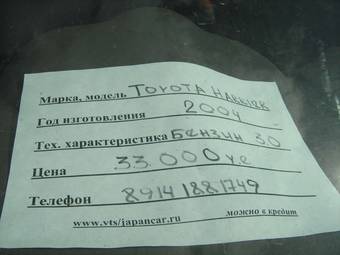 Марка, модель TOYOTA HARRIER
Год изготовления 2004
Тех. характеристика БЕНЗИН 3.0
Цена 33.000 у.е
Телефон 89141881749
www.vts/japancar.ru можно в кредит